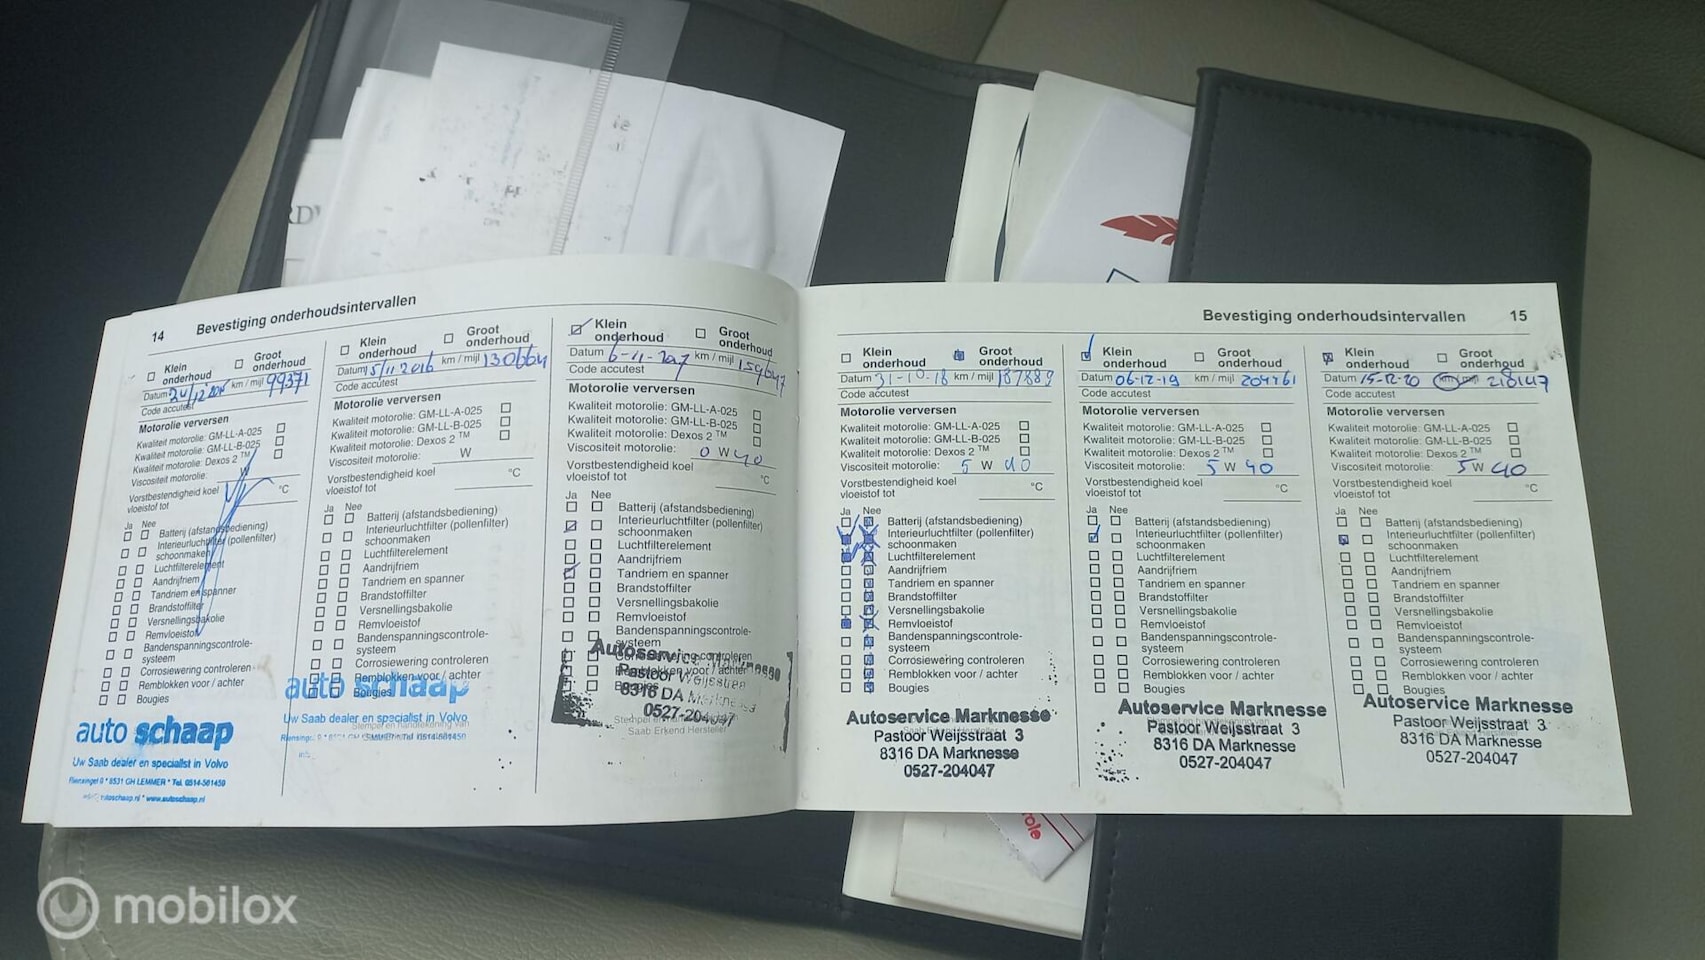 14 Bevestiging onderhoudsintervallen
Klein onderhoud
Groot onderhoud
Datum km / mijl 99371
Code accutest
Motorolie verversen
Kwaliteit motorolie: GM-LL-A-025
Kwaliteit motorolie: GM-LL-B-025
Kwaliteit motorolie: Dexos 2 TM
Viscositeit motorolie: W
Vorstbestendigheid koel
vloeistof tot °C
Ja Nee
Batterij (afstandsbediening)
Interieurluchtfilter (pollenfilter)
schoonmaken
Luchtfilterelement
Aandrijfriem
Tandriem en spanner
Brandstoffilter
Versnellingsbakolie
Remvloeistof
Bandenspanningscontrole-
systeem
Corrosiewering controleren
Remblokken voor / achter
Bougies
auto schaap
Uw Saab dealer en specialist in Volvo
Riensingel 9 * 8531 GH LEMMER * Tel. 0514-561450
* www.autoschaap.nl
Klein onderhoud
Groot onderhoud
Datum 15/11 2016 km / mijl 130664
Code accutest
Motorolie verversen
Kwaliteit motorolie: GM-LL-A-025
Kwaliteit motorolie: GM-LL-B-025
Kwaliteit motorolie: Dexos 2 TM
Viscositeit motorolie: W
Vorstbestendigheid koel
vloeistof tot °C
Ja Nee
Batterij (afstandsbediening)
Interieurluchtfilter (pollenfilter)
schoonmaken
Luchtfilterelement
Aandrijfriem
Tandriem en spanner
Brandstoffilter
Versnellingsbakolie
Remvloeistof
Bandenspanningscontrole-
systeem
Corrosiewering controleren
Remblokken voor / achter
Bougies
auto schaap
Uw Saab dealer en specialist in Volvo
Stempel en handtekening van
Klein onderhoud
Groot onderhoud
Datum 6-11-2017 km / mijl 159647
Code accutest
Motorolie verversen
Kwaliteit motorolie: GM-LL-A-025
Kwaliteit motorolie: GM-LL-B-025
Kwaliteit motorolie: Dexos 2 TM
Viscositeit motorolie: 0 W 40
Vorstbestendigheid koel
vloeistof tot °C
Ja Nee
Batterij (afstandsbediening)
Interieurluchtfilter (pollenfilter)
schoonmaken
Luchtfilterelement
Aandrijfriem
Tandriem en spanner
Brandstoffilter
Versnellingsbakolie
Remvloeistof
Bandenspanningscontrole-
systeem
Corrosiewering controleren
Remblokken voor / achter
Bougies
Autoservice Marknesse
Pastoor Weijsstraat
8316 DA Marknesse
0527-204047
Stempel en handtekening van
Saab Erkend Hersteller
Bevestiging onderhoudsintervallen 15
Klein onderhoud
Groot onderhoud
Datum 31-10-18 km / mijl 187889
Code accutest
Motorolie verversen
Kwaliteit motorolie: GM-LL-A-025
Kwaliteit motorolie: GM-LL-B-025
Kwaliteit motorolie: Dexos 2 TM
Viscositeit motorolie: 5 W 40
Vorstbestendigheid koel
vloeistof tot °C
Ja Nee
Batterij (afstandsbediening)
Interieurluchtfilter (pollenfilter)
schoonmaken
Luchtfilterelement
Aandrijfriem
Tandriem en spanner
Brandstoffilter
Versnellingsbakolie
Remvloeistof
Bandenspanningscontrole-
systeem
Corrosiewering controleren
Remblokken voor / achter
Bougies
Autoservice Marknesse
Pastoor Weijsstraat 3
8316 DA Marknesse
0527-204047
Klein onderhoud
Groot onderhoud
Datum 06-12-19 km / mijl 204461
Code accutest
Motorolie verversen
Kwaliteit motorolie: GM-LL-A-025
Kwaliteit motorolie: GM-LL-B-025
Kwaliteit motorolie: Dexos 2 TM
Viscositeit motorolie: 5 W 40
Vorstbestendigheid koel
vloeistof tot °C
Ja Nee
Batterij (afstandsbediening)
Interieurluchtfilter (pollenfilter)
schoonmaken
Luchtfilterelement
Aandrijfriem
Tandriem en spanner
Brandstoffilter
Versnellingsbakolie
Remvloeistof
Bandenspanningscontrole-
systeem
Corrosiewering controleren
Remblokken voor / achter
Bougies
Autoservice Marknesse
Pastoor Weijsstraat 3
8316 DA Marknesse
0527-204047
Klein onderhoud
Groot onderhoud
Datum 15-12-20 km / mijl 218147
Code accutest
Motorolie verversen
Kwaliteit motorolie: GM-LL-A-025
Kwaliteit motorolie: GM-LL-B-025
Kwaliteit motorolie: Dexos 2 TM
Viscositeit motorolie: 5 W 40
Vorstbestendigheid koel
vloeistof tot °C
Ja Nee
Batterij (afstandsbediening)
Interieurluchtfilter (pollenfilter)
schoonmaken
Luchtfilterelement
Aandrijfriem
Tandriem en spanner
Brandstoffilter
Versnellingsbakolie
Remvloeistof
Bandenspanningscontrole-
systeem
Corrosiewering controleren
Remblokken voor / achter
Bougies
Autoservice Marknesse
Pastoor Weijsstraat 3
8316 DA Marknesse
0527-204047
mobilox